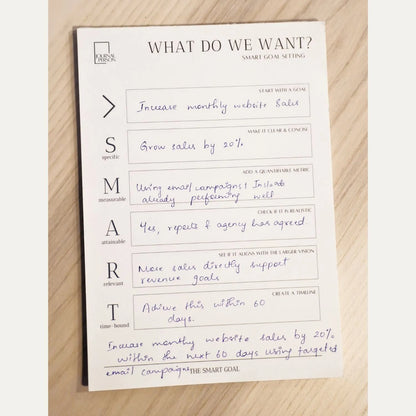 JOURNAL
PERSON
WHAT DO WE WANT?
SMART GOAL SETTING
START WITH A GOAL
Increase monthly website sales
MAKE IT CLEAR & CONCISE
S
specific
Grow sales by 20%
ADD A QUANTIFIABLE METRIC
M
measurable
Using email campaigns & Insta ads
already performing well
CHECK IF IT IS REALISTIC
A
attainable
Yes, reports & agency has agreed
SEE IF IT ALIGNS WITH THE LARGER VISION
R
relevant
More sales directly support
revenue goals
CREATE A TIMELINE
T
time-bound
Achieve this within 60
days.
Increase monthly website sales by 20%
within the next 60 days using targeted
email campaigns
THE SMART GOAL